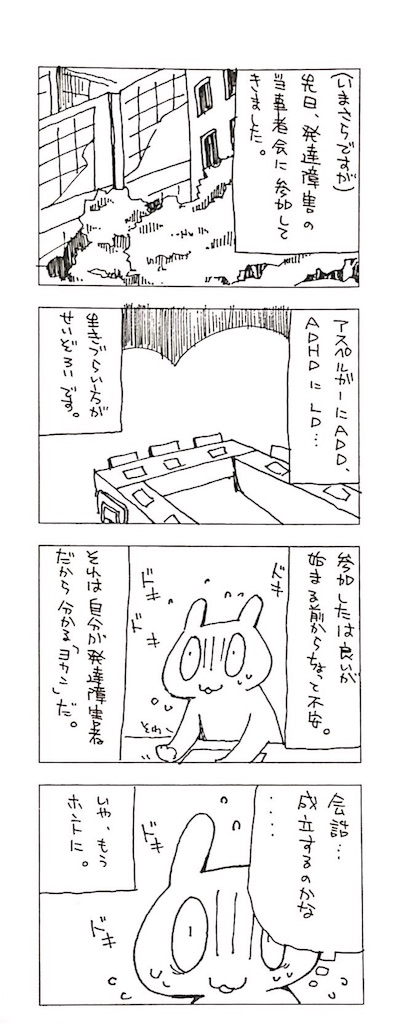 （いまさらですが）
先日、発達障害の
当事者会に参加して
きました。
アスペルガーにADD、
ADHDにLD…
生きづらい方が
せいぞろいです。
参加したは良いが
始まる前からちょって不安。
ドキ
ドキ
ドキ
それは自分が発達障害者
だから分かる「ヨカン」だ。
会話…
成立するのかな
‥‥
ドキ
ドキ
いや、もう
ホントに。